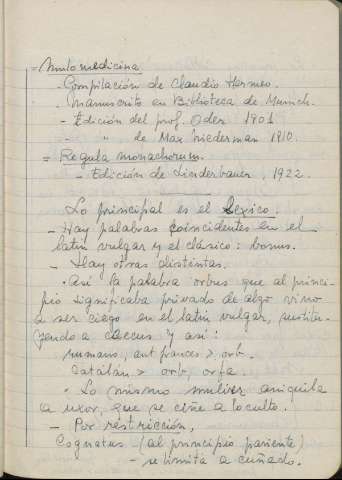 = Mulomedicina
- Compilación de Claudio Hermeo.
- Manuscrito en Biblioteca de Munich.
- Edición del prof. Oder 1901
- " de Max Niederman 1910.
= Regula monachorum.
- Edición de Linderbauer, 1922.
Lo principal es el léxico.
- Hay palabras coincidentes en el
latín vulgar y el clásico: bonus.
- Hay otras distintas.
· Así la palabra orbus que al princi-
pio significaba privado de algo vino
a ser ciego en el latín vulgar, sustitu-
yendo a caecus y así:
rumano, ant. frances > orb.
Catalan > orb, orfa.
· Lo mismo mulier aniquila
a uxor, que se ciñe a lo culto.
- Por restricción,
Cognatus (al principio pariente)
- se limita a cuñado.